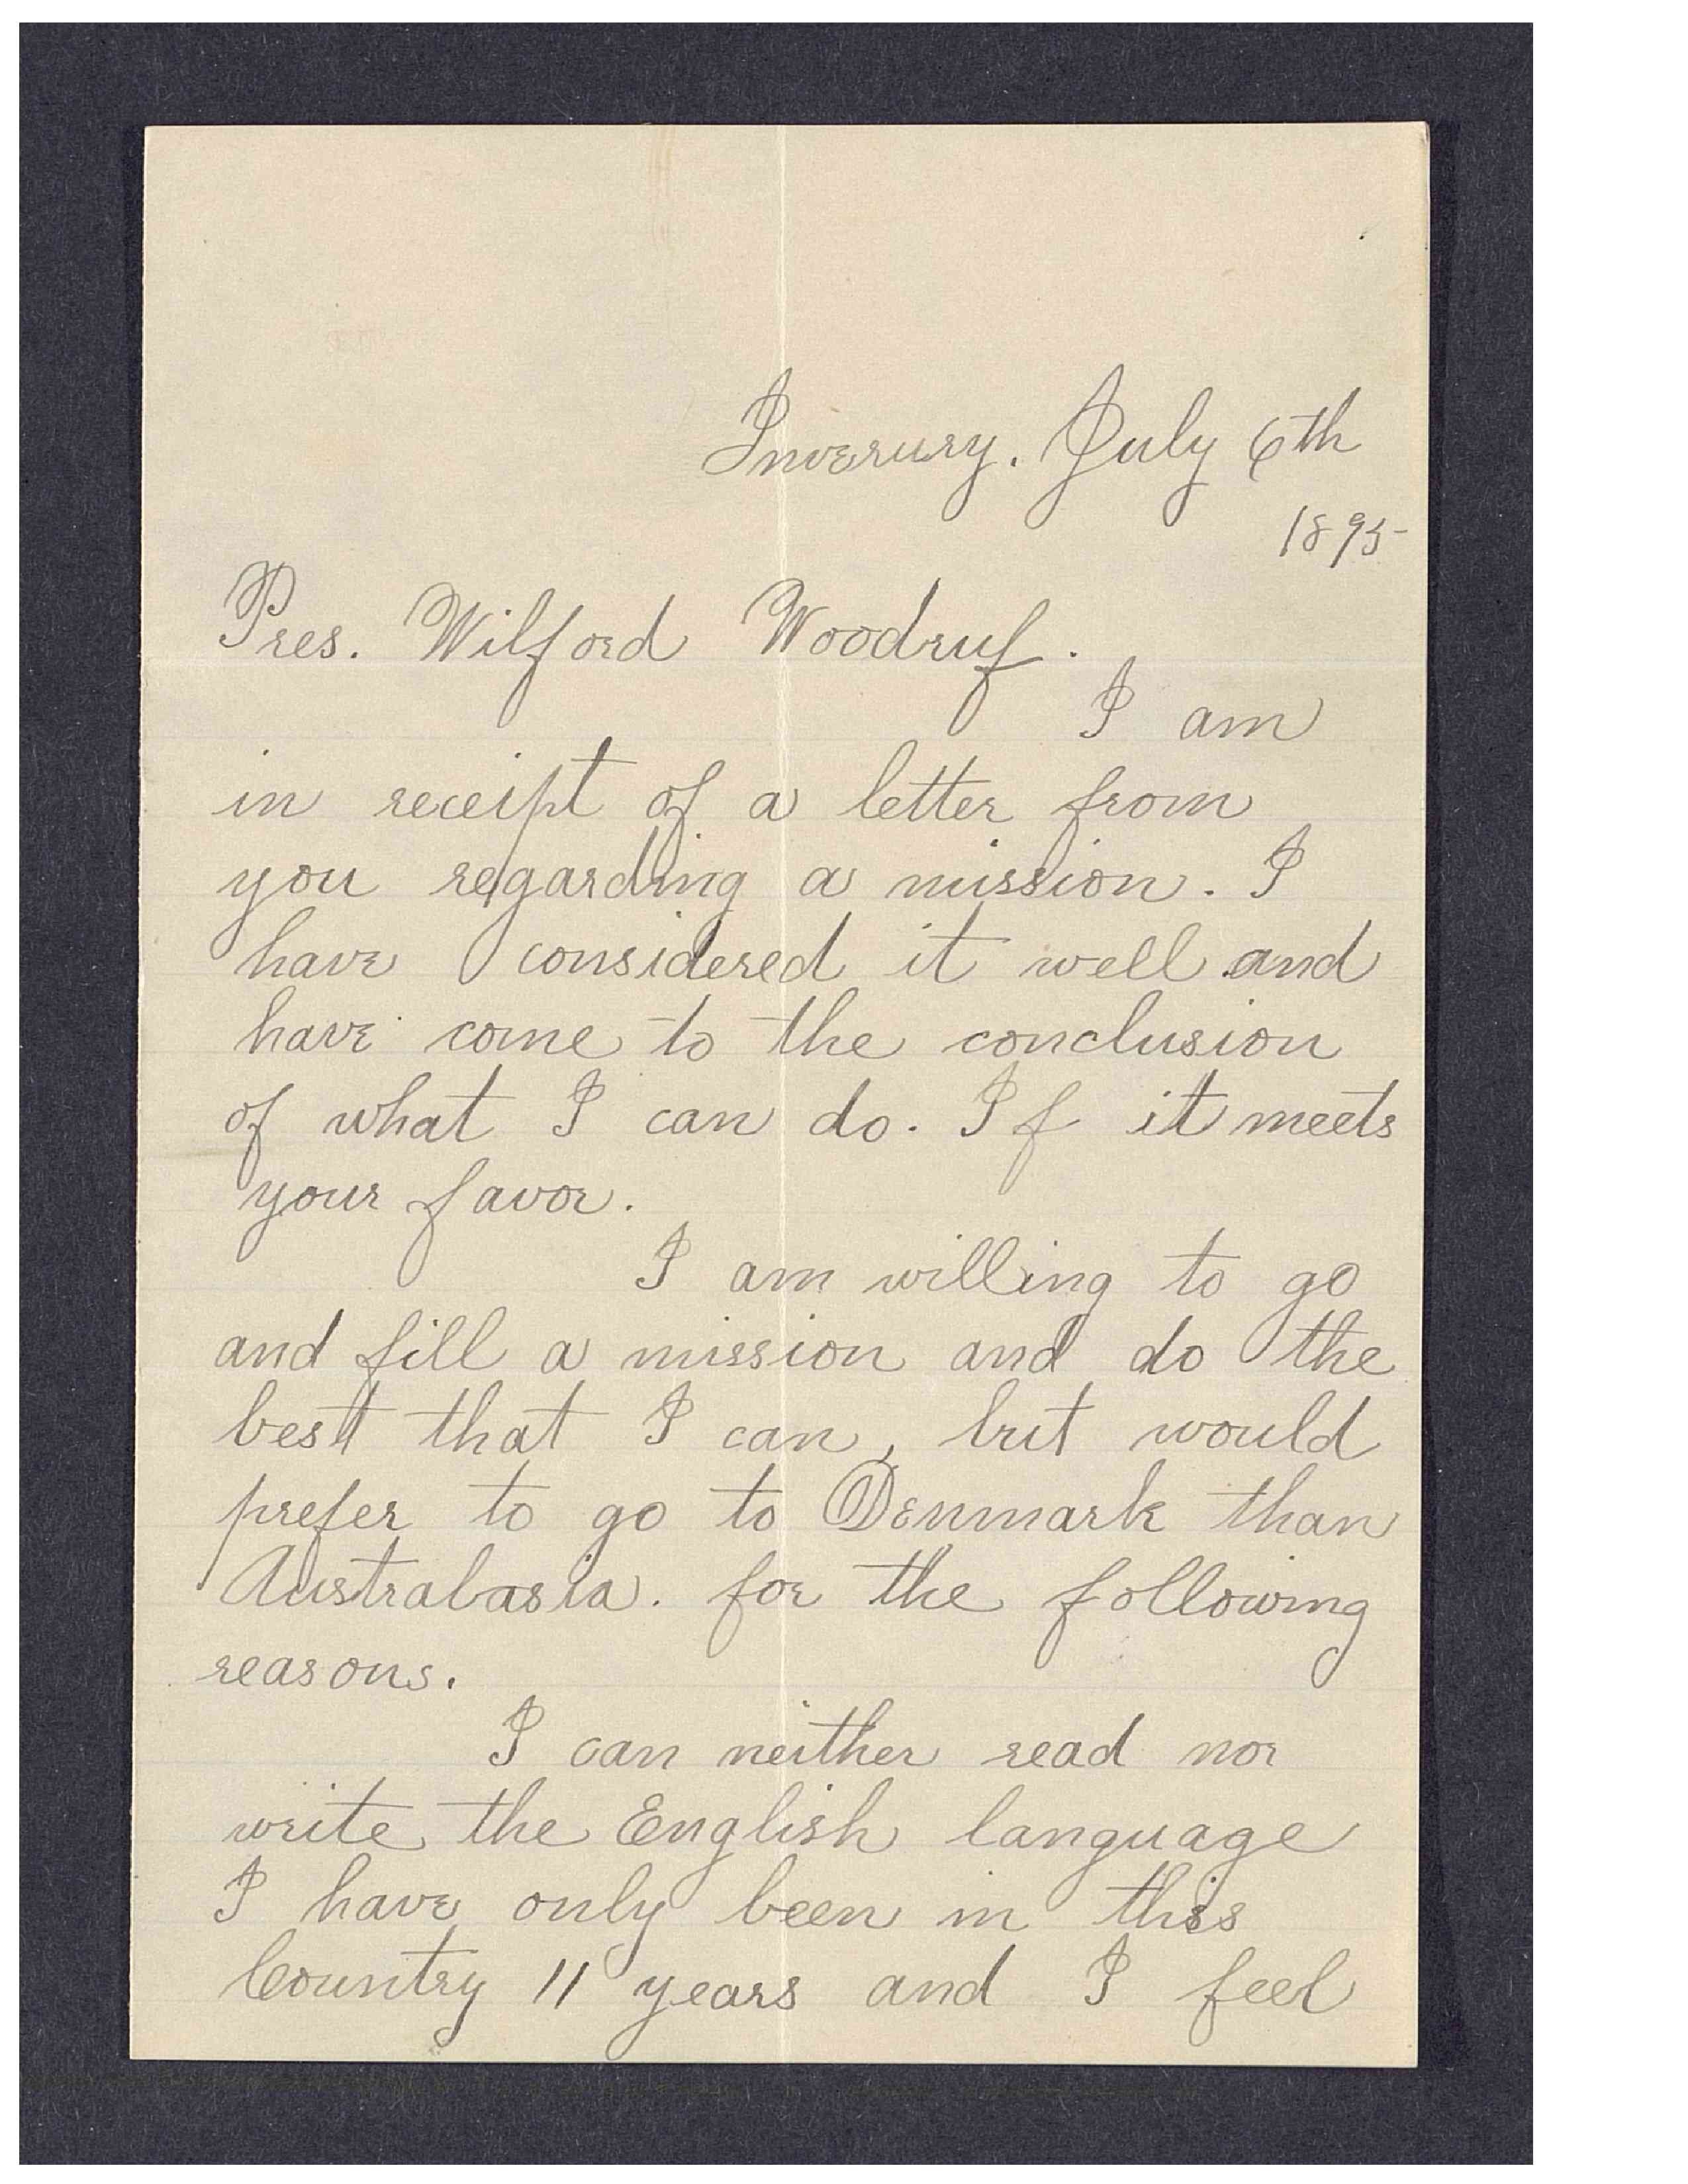 Inverury. July 6th
1895-
Pres. Wilford Woodruf.
I am
in receipt of a letter from
you regarding a mission. I
have considered it well and
have come to the conclusion
of what I can do. If it meets
your favor.
I am willing to go
and fill a mission and do the
best that I can, but would
prefer to go to Denmark than
Australasia. for the following
reasons.
I can neither read nor
write the English language
I have only been in this
Country 11 years and I feel